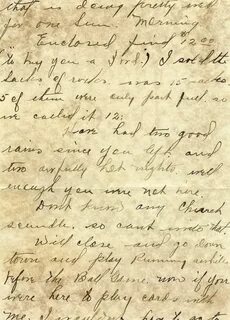 that is doing pretty well
for one Sun. Morning
Enclosed find $12.00
to buy you a Ford.) I sold the
sacks of rocks. was 15 - and
5 of them were only part full. so
we called it 12:
Have had two good
rains since you left, and
two awfully hot nights, well
enough you were not here.
Dont know any Church
scandle, so cant write that.
Will close - and go down
town and play Running
before the Ball Game. now if you
were here to play cards with
me, I